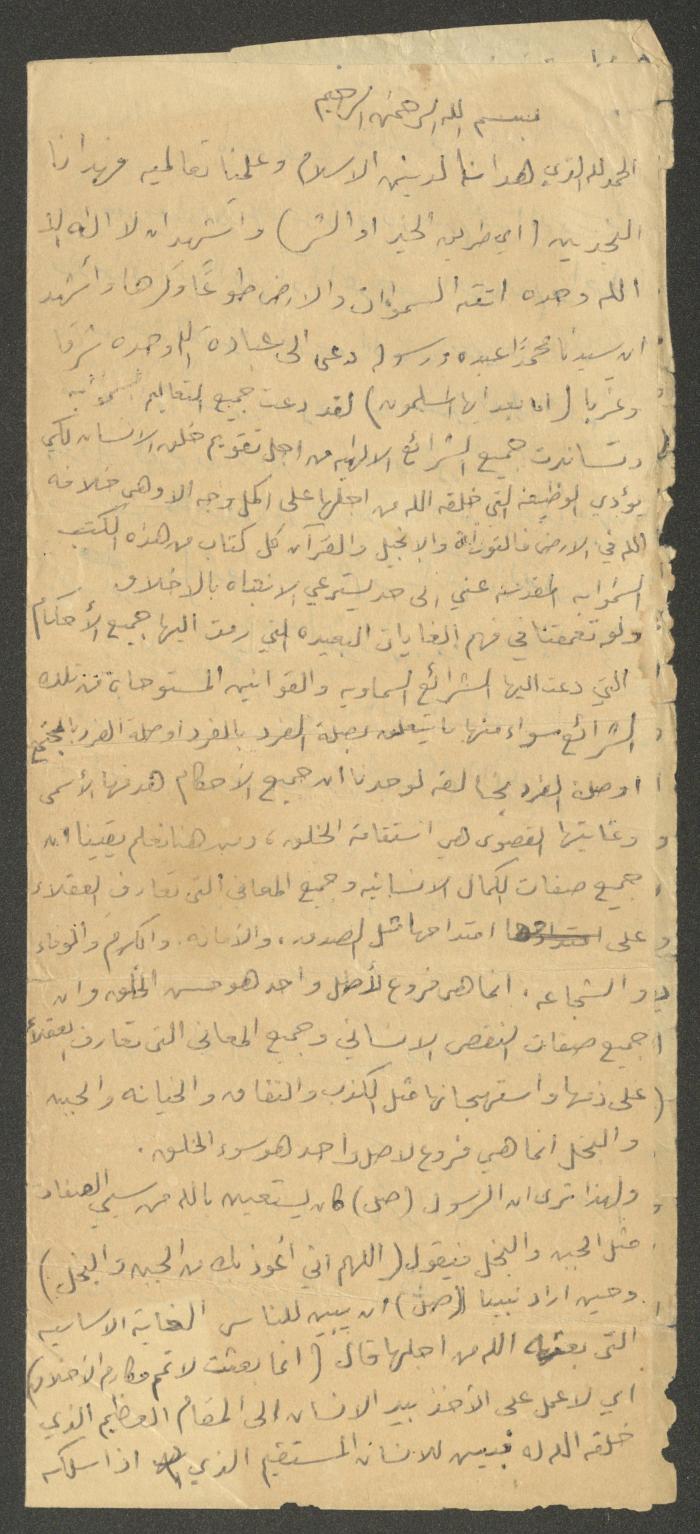 بسم الله الرحمن الرحيم
الحمد لله الذي هدانا لدينه الاسلام وعلمنا تعاليمه فهدانا
النجدين (اي طريق الخير او الشر) واشهد ان لا اله الا
الله وحده اتقه السموات والارض طوعًا وكرها وأشهد
ان سيدنا محمدًا عبده ورسوله دعى الى عبادة الله وحده شرقا
وغربا (اما بعد ايها المسلمون) لقد دعت جميع التعاليم السموايه
وتساندت جميع الشرائع الالهيه من اجل تقويم خلق الانسان لكي
يؤدي الوظيفة التي خلقه الله من اجلها على اكمل وجه الا وهي خلافة
الله في الارض فالتوراة والانجيل والقرآن كل كتاب من هذه الكتب
السموايه المقدسه عني الى حد يسترعي الانتباه بالاخلاق
ولو تعمقنا في فهم الغايات البعيده التي رمت اليها جميع الأحكام
التي دعت اليها الشرائع السماويه والقوانين المستوحاة من تلك
الشرائع سواء منها ما يتعلق بصلة الفرد بالفرد او صلة الفرد بالمجتمع
او صلة الفرد بخالقه لوجدنا ان جميع الأحكام هدفها الأسمى
وغايتها القصوى هي استقامة الخلق، ومن هنا نعلم يقينا ان
جميع صفات الكمال الانسانيه وجميع المعاني التي تعارف العقلاء
على امتداحها مثل الصدق، والأمانه، والكرم والوفاء
والشجاعه، انما هي فروع لأصل واحد هو حسن الخلق وان
جميع صفات النقص الانساني وجميع المعاني التي تعارف العقلاء
على ذمها واستهجانها مثل الكذب والنفاق والخيانه والجبن
والبخل انما هي فروع لاصل واحد هو سوء الخلق.
ولهذا ترى ان الرسول (ص) كان يستعين بالله من سيء الصفات
مثل الجبن والبخل فيقول (اللهم اني أعوذ بك من الجبن والبخل)
وحين اراد نبينا (ص) أن يبين للناس الغاية الاساسيه
التي بعثه الله من اجلها قال (انما بعثت لاتمم مكارم الأخلاق)
اي لاعمل على الأخذ بيد الانسان الى المقام العظيم الذي
خلقه الله له فبين للانسان المستقيم الذي اذا سلكه